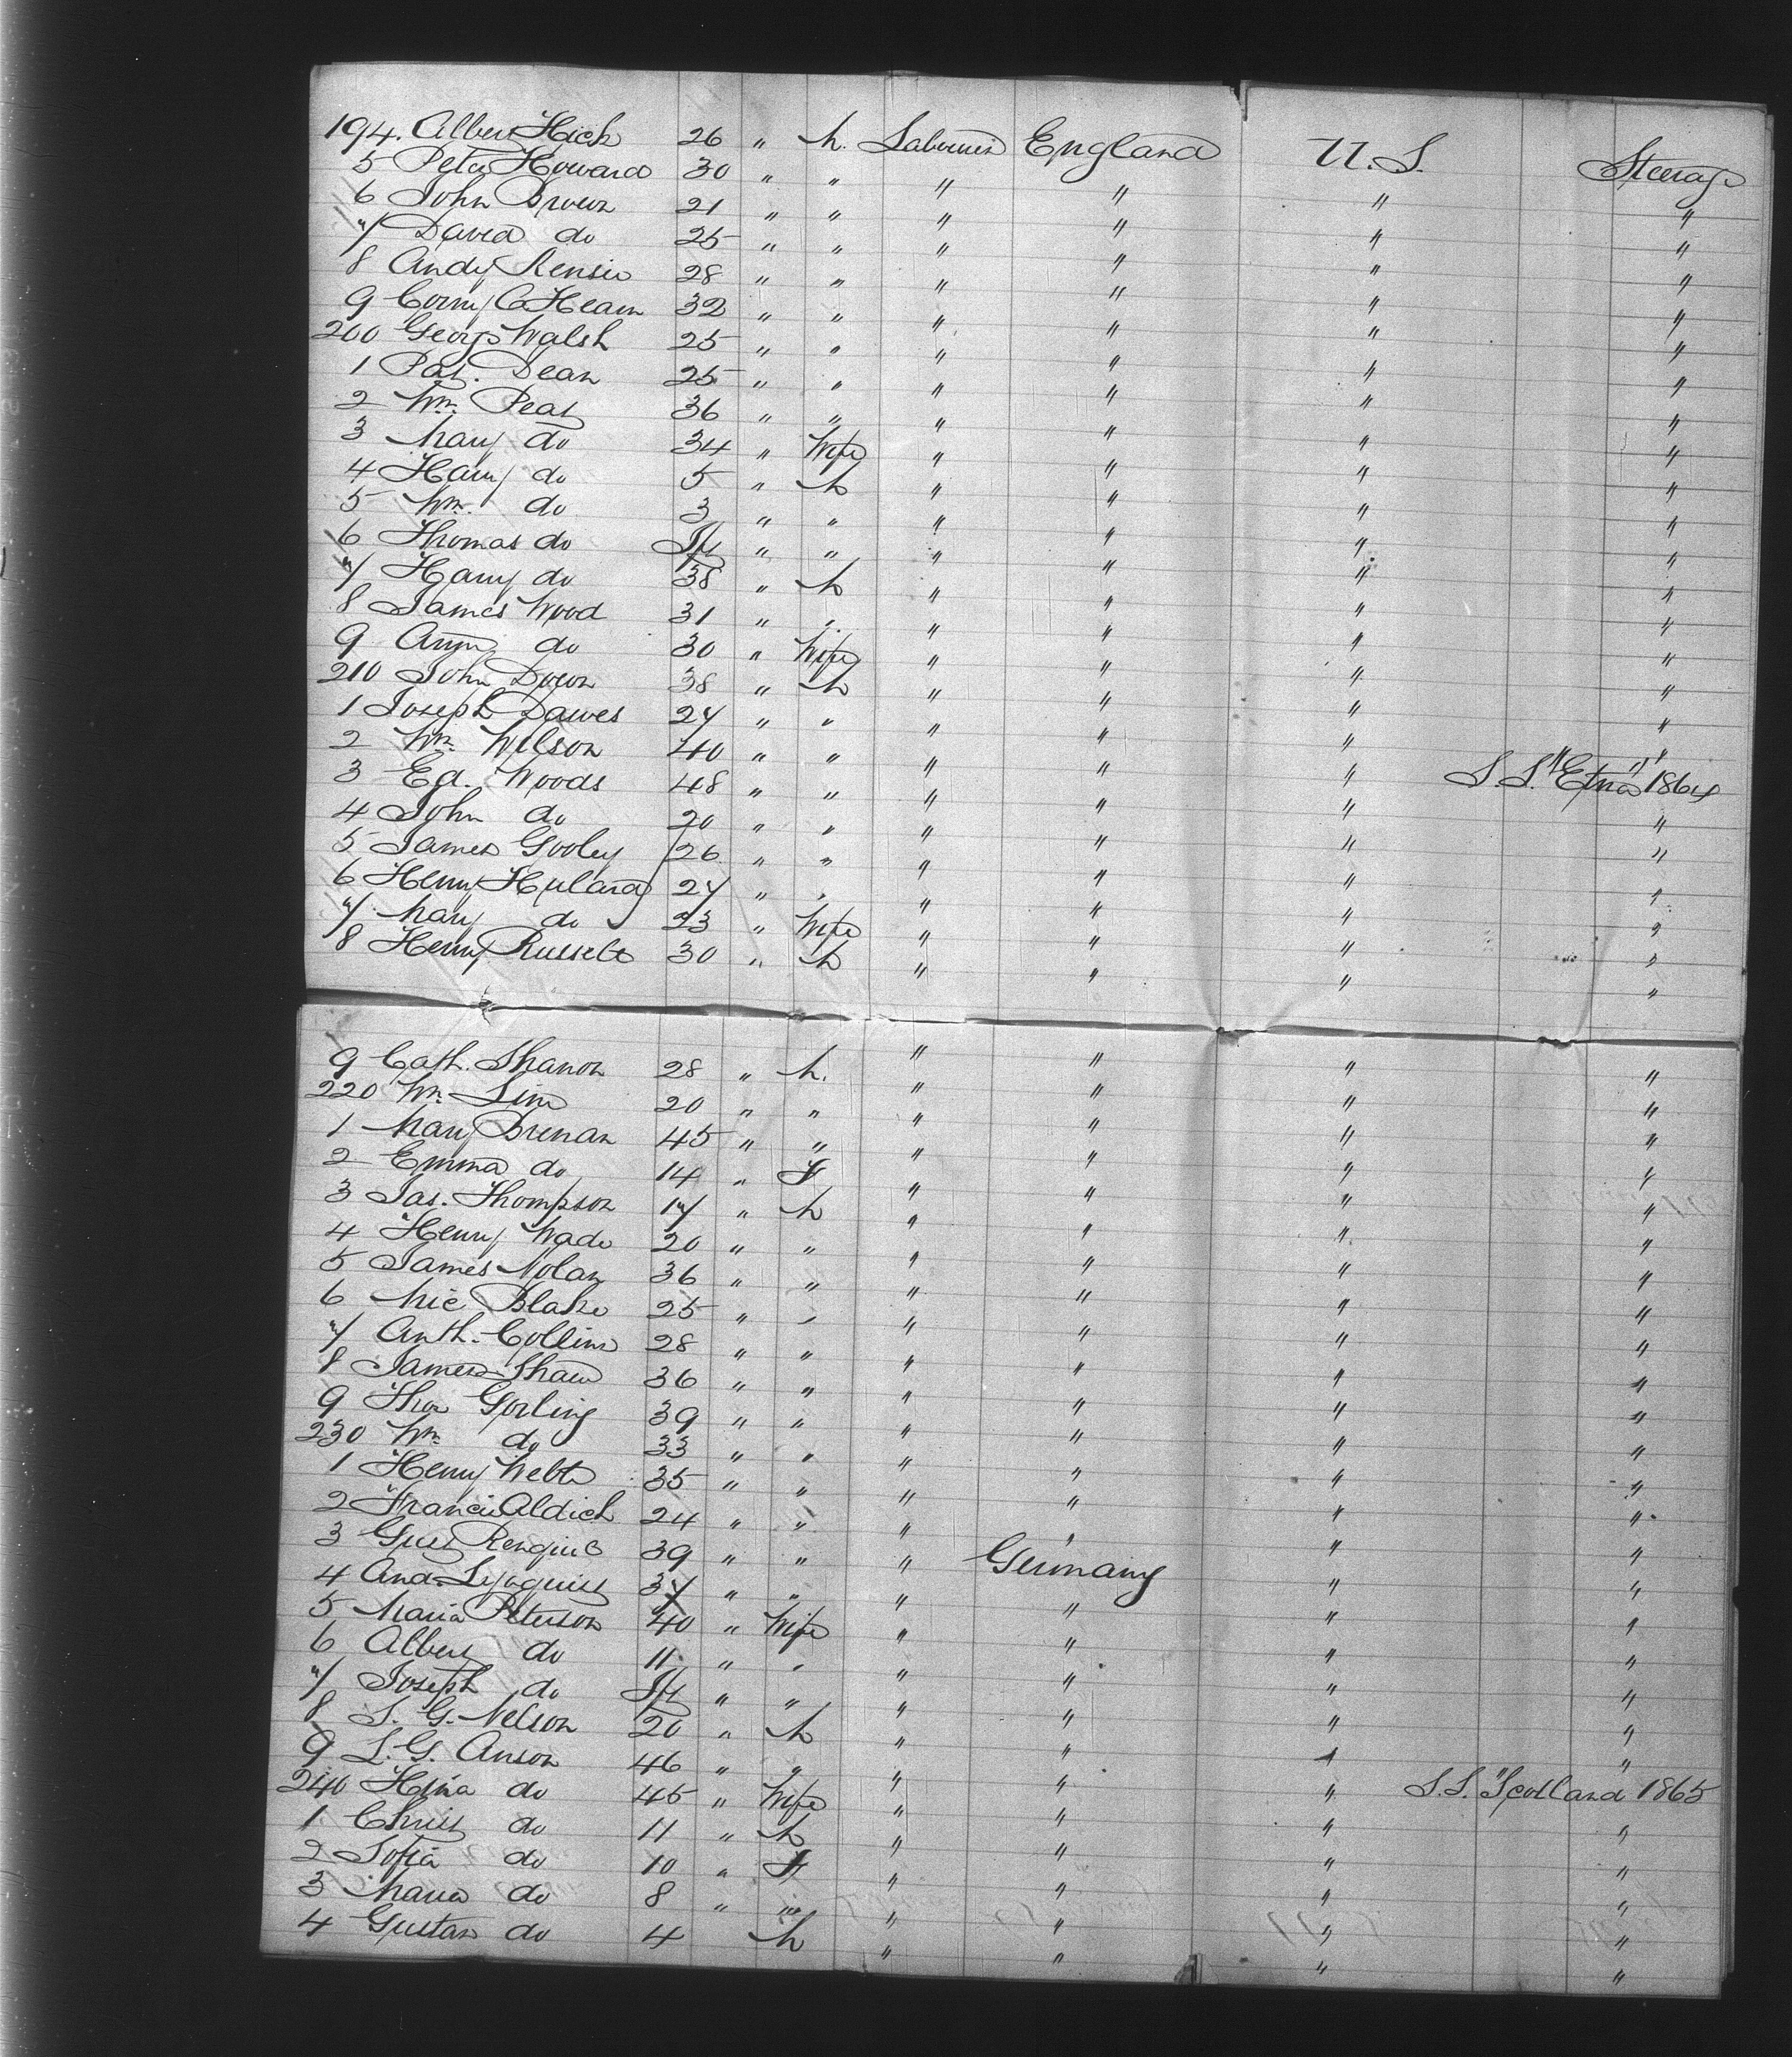 194. Albert Hick 26 " M. Labourer England U.S. Steerage
5 Peter Howard 30 " " " " " "
6 John Brown 21 " " " " " "
7 David do 25 " " " " " "
8 Andy 28 " " " " " "
9 32 " " " " " "
200 George Walsh 25 " " " " " "
1 Pat. Dean 25 " " " " " "
2 Wm. Peat 36 " " " " " "
3 Mary do 34 " Wife " " " "
4 Harry do 5 " M " " " "
5 Wm. do 3 " " " " " "
6 Thomas do Inft " " " " " "
7 Harry do 38 " M " " " "
8 James Wood 31 " " " " " "
9 Ann do 30 " Wife " " " "
210 John 38 " M " " " "
1 Joseph Dawes 27 " " " " " "
2 Wm. Wilson 40 " " " " " "
3 Ed. Woods 48 " " " " " S.S. "Etna" 1864
4 John do 20 " " " " " "
5 James Gooley 26 " " " " " "
6 Henry 27 " " " " " "
7 Mary do 23 " Wife " " " "
8 Henry Russell 30 " M " " " "
9 Cath. Shanon 28 " M. " " " "
220 Wm. 20 " " " " " "
1 Mary Brenan 45 " " " " " "
2 Emma do 14 " F " " " "
3 Jas. Thompson 17 " M " " " "
4 Henry Wade 20 " " " " " "
5 James Nolan 36 " " " " " "
6 Mic Blake 25 " " " " " "
7 Anth. Collins 28 " " " " " "
8 James Shaw 36 " " " " " "
9 Thos Gorling 39 " " " " " "
230 Wm. do 33 " " " " " "
1 Henry Webb 35 " " " " " "
2 Francis Aldich 24 " " " " " "
3 Gust 39 " " " Germany " "
4 And. 37 " " " " " "
5 Maria Peterson 40 " Wife " " " "
6 Albert do 11 " " " " " "
7 Joseph do Inft " " " " " "
8 S. G. Nelson 20 " M " " " "
9 L. G. Anson 46 " " " " " "
240 do 45 " Wife " " " S.S. "Scotland 1865
1 Christ do 11 " M " " " "
2 Sofia do 10 " F " " " "
3 Maria do 8 " " " " " "
4 Gustav do 4 M " " " "